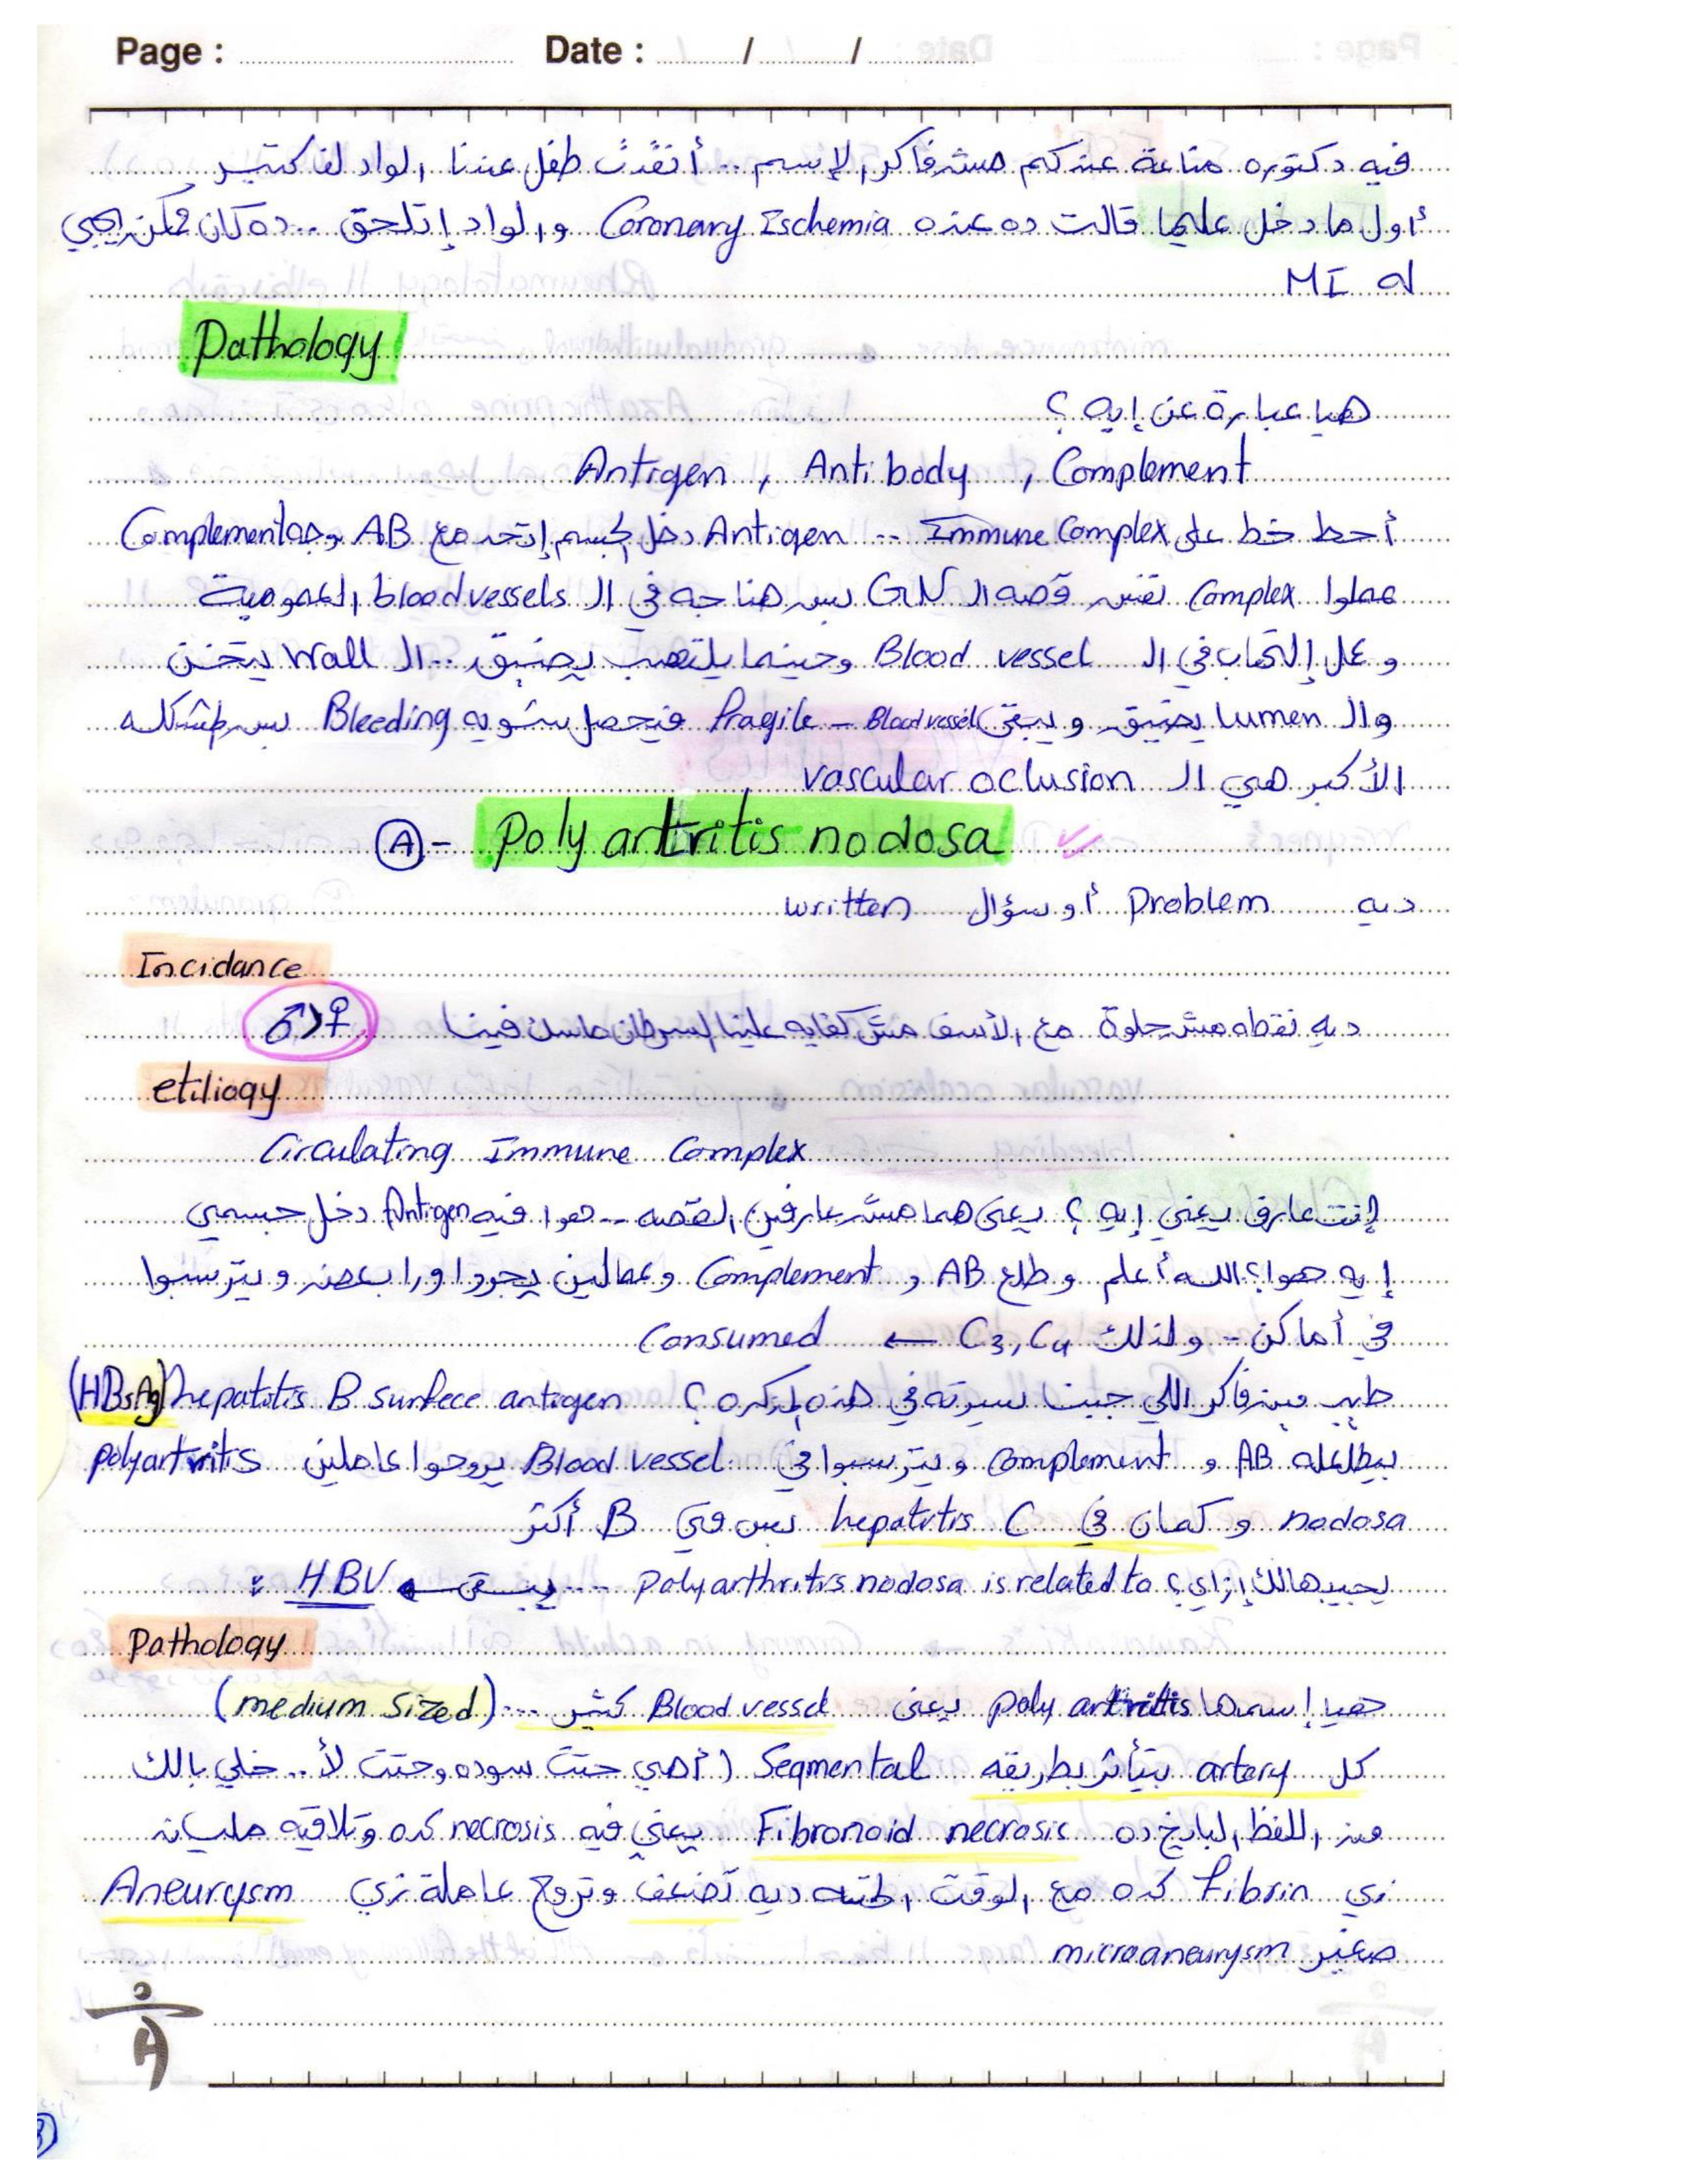 Page : Date : / /
فيه دكتوره بتاعة عندكم مش فاكر الإسم .. أنقذت طفل عندنا الواد لف كتير
أول ما دخل عليها قالت ده عنده Coronary Ischemia والواد إتلحق .. ده كان ممكن يجي
له MI
Pathology
هيا عبارة عن إيه ؟
Antigen , Antibody , Complement
أحط خط على Immune Complex .. Antigen دخل الجسم إتحد مع AB وجه Complement
عملوا Complex نفس قصه الـ GN بس هنا جه في الـ blood vessels العمومية
وعمل إلتهاب في الـ Blood vessel وحينما يلتهب يضيق .. الـ wall يتخن
والـ Lumen يضيق ويبقى Blood vessel - Fragile فيحصل شويه Bleeding بس المشكله
الأكبر هي الـ vascular oclusion
(A) - Poly artritis nodosa
ديه Problem أو سؤال written
Incidance
ديه نقطه مش حلوة مع الأسف مش كفايه علينا السرطان ماسك فينا ♂>♀
etiliogy
Circulating Immune Complex
إنت عارف يعني إيه ؟ يعنى هما مش عارفين القصه .. هوا فيه Antigen دخل جسمي
إيه هوا؟ الله أعلم وطلع AB و Complement وعمالين يجروا ورا بعض ويترسبوا
في أماكن - ولذلك C3, C4 ← Consumed
طيب مين فاكر اللي جبنا سيرته في هذه المذكره ؟ hepatitis B surfece antigen (HBsAg)
بيطلعله AB و Complement ويترسبوا في Blood vessel يروحوا عاملين polyartritis
nodosa و كمان في hepatitis C بس في B أكتر
يجيبهالك إزاي ؟ polyarthritis nodosa is related to .... يبقى ← HBV :
Pathology
هيا إسمها poly artritis يعنى Blood vessel كتير ... (medium sized)
كل artery بتتأثر بطريقه Segmental ( أهي حتت سوده وحتت لأ .. خلي بالك
من اللفظ البايخ ده Fibronoid necrosis يعني فيه necrosis كده وتلاقيه مليانه
زي fibrin كده مع الوقت الحته ديه تضعف وتروح عاملة زي Aneurysm
صغير microaneurysm